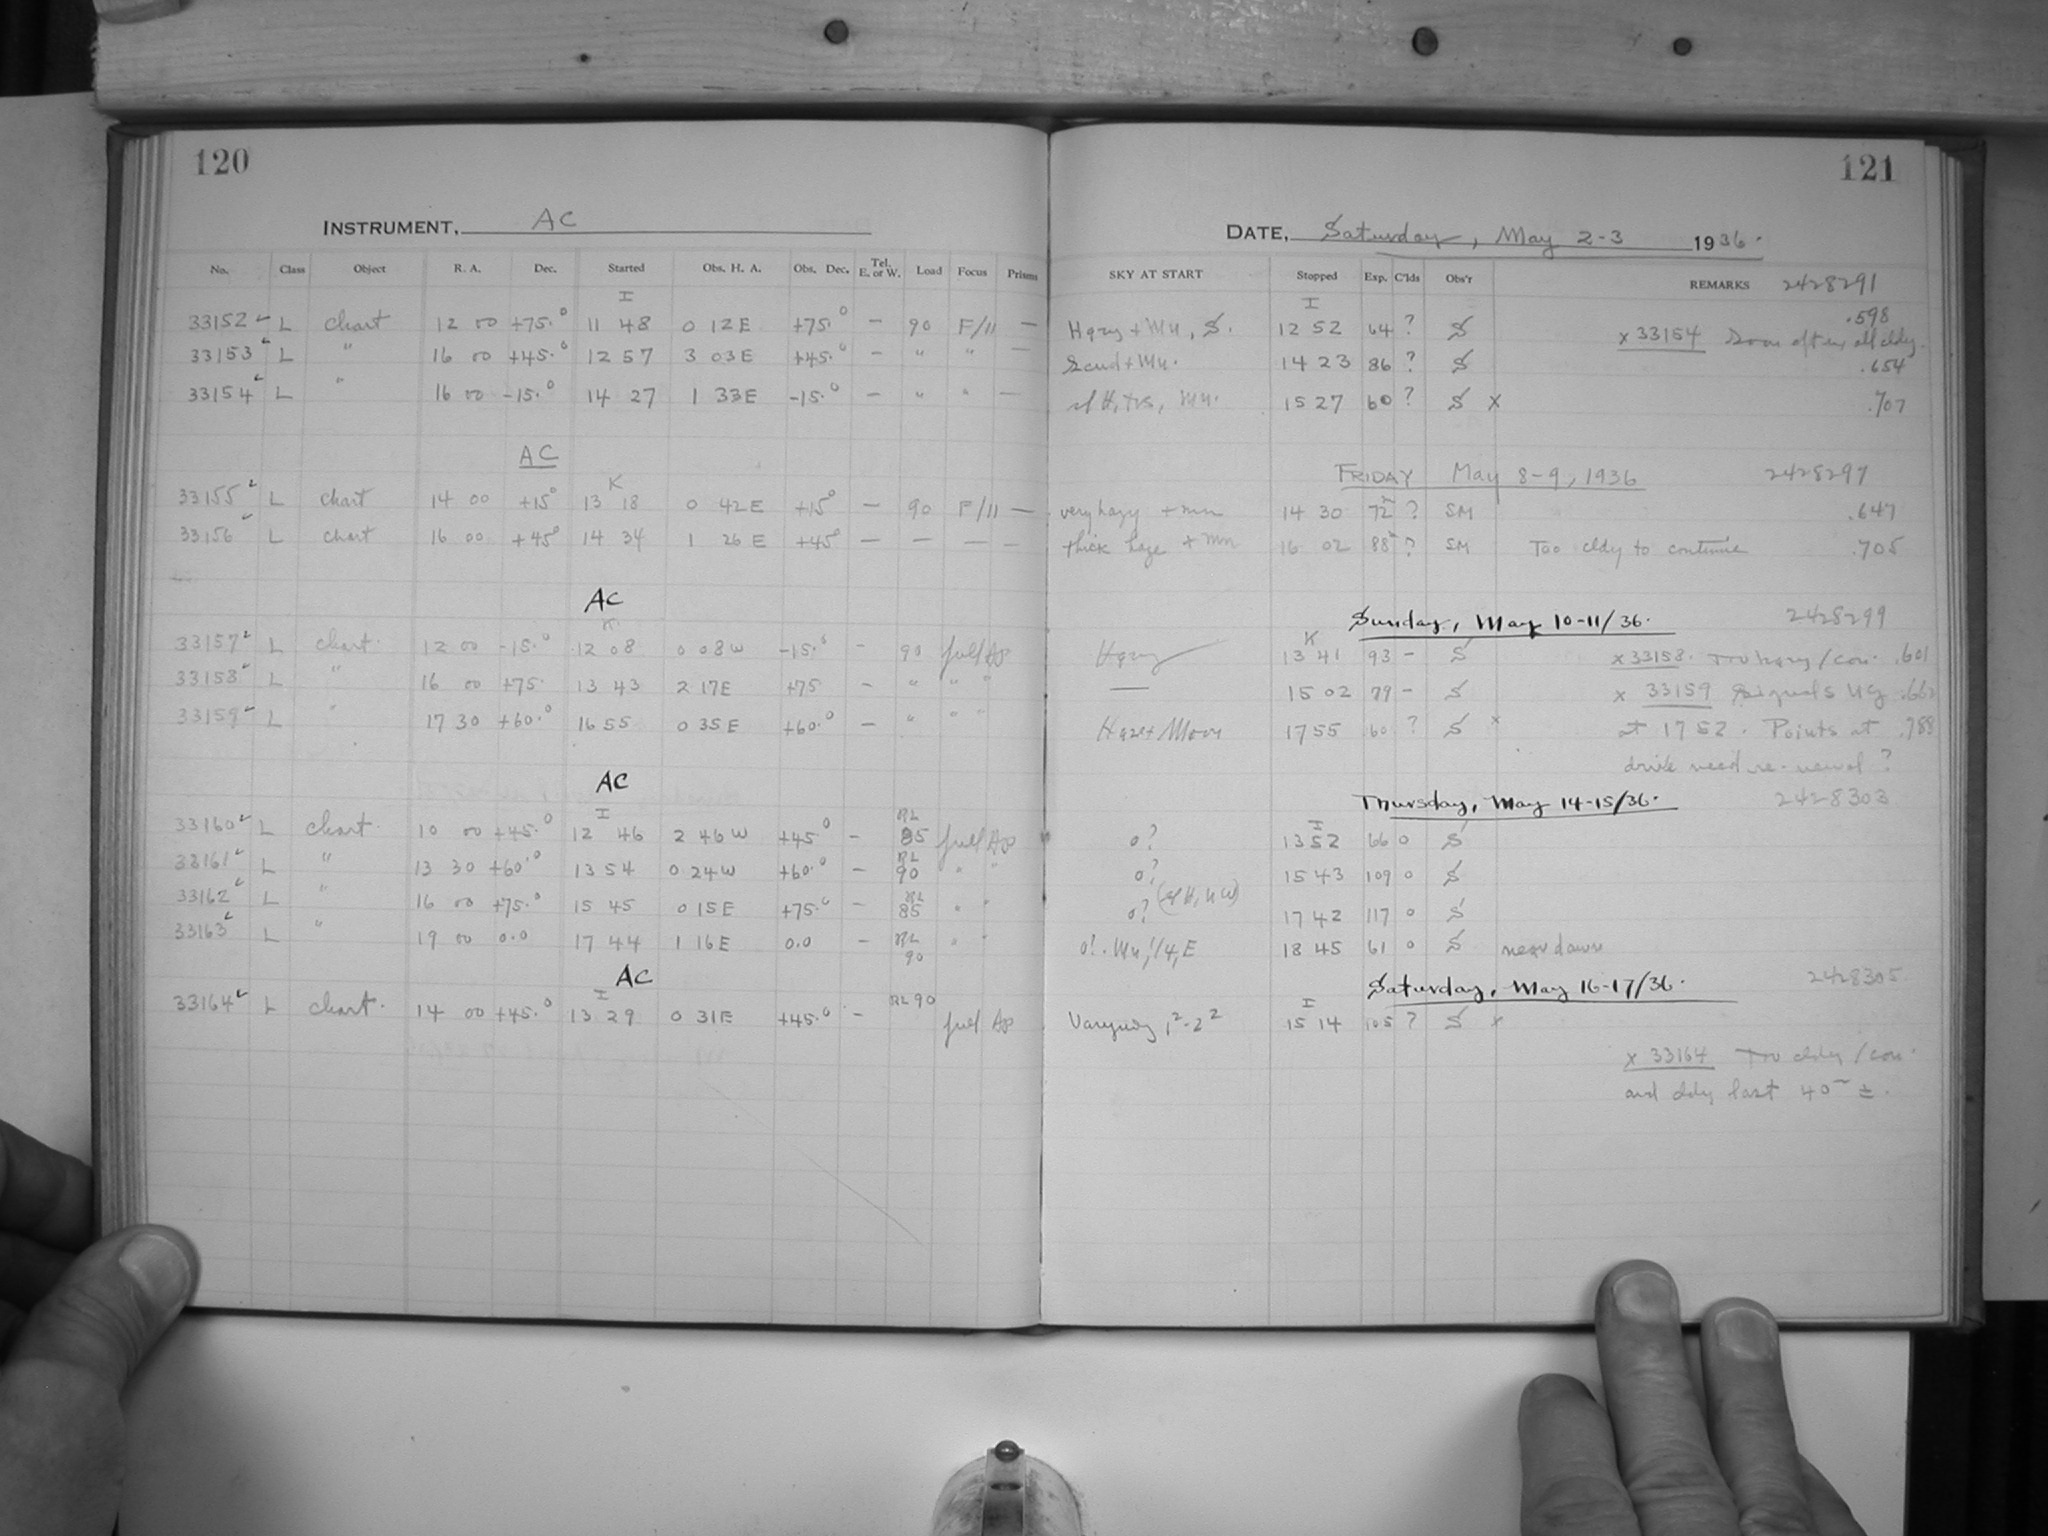 120
INSTRUMENT, AC
No. Class Object R. A. Dec. Started Obs. H. A. Obs. Dec. Tel. E. or W. Load Focus Prisms
I
33152 L chart 12 00 +75.0 11 48 0 12 E +75.0 — 90 F/11 —
33153 L " 16 00 +45.0 12 57 3 03 E +45.0 — " " —
33154 L " 16 00 -15.0 14 27 1 33 E -15.0 — " " —
AC
K
33155 L chart 14 00 +15° 13 18 0 42 E +15° — 90 F/11 —
33156 L chart 16 00 +45° 14 34 1 26 E +45° — — — —
AC
K
33157 L chart. 12 00 -15.0 12 08 0 08 W -15.0 — 90 full Ap
33158 L " 16 00 +75. 13 43 2 17 E +75 — " " "
33159 L " 17 30 +60.0 16 55 0 35 E +60.0 — " " "
AC
I
33160 L chart. 10 00 +45.0 12 46 2 46 W +45.0 — RL 85 full Ap
33161 L " 13 30 +60.0 13 54 0 24 W +60.0 — RL 90 " "
33162 L " 16 00 +75.0 15 45 0 15 E +75.0 — RL 85 " "
33163 L " 19 00 0.0 17 44 1 16 E 0.0 — RL 90 " "
AC
I
33164 L chart. 14 00 +45.0 13 29 0 31 E +45.0 — RL 90 full Ap
121
DATE, Saturday, May 2-3 1936.
SKY AT START Stopped Exp. C'lds Obs'r REMARKS 2428291
I
Hazy + Mn, S. 12 52 64 ? S x 33154 Soon after all cldy. .598
Scud + Mn. 14 23 86 ? S .654
sl H, Mn. 15 27 60 ? S x .707
FRIDAY May 8-9, 1936 2428297
very hazy + mn 14 30 72 m ? SM .647
thick haze + mn 16 02 88 ? SM Too cldy to continue .705
Sunday, May 10-11/36. 2428299
K
Hazy 13 41 93 — S x 33158. Too hazy/con. .601
— 15 02 79 — S x 33159 Signals NG .662
Haze + Moon 17 55 60 ? S x at 1752. Points at .788
drive need re-newal?
Thursday, May 14-15/36. 2428303
I
0? 13 52 66 0 S
0? 15 43 109 0 S
0? (sl H, NW) 17 42 117 0 S
0?. Mn, 1/4, E 18 45 61 0 S near dawn
Saturday, May 16-17/36. 2428305
I
Varying 1²-2² 15 14 105 ? S x
x 33164 Too cldy/con.
and cldy last 40m ±.